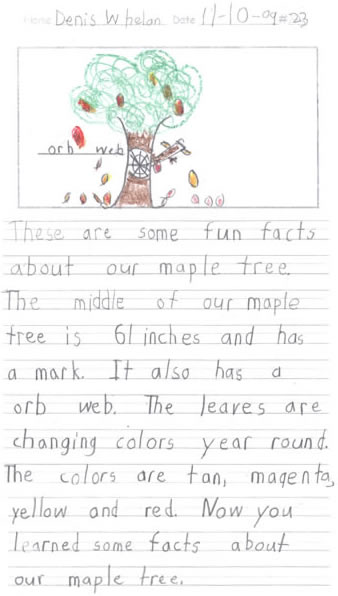 Name Denis Whelan Date 11-10-09 #23
orb web
These are some fun facts
about our maple tree.
The middle of our maple
tree is 61 inches and has
a mark. It also has a
orb web. The leaves are
changing colors year round.
The colors are tan, magenta,
yellow and red. Now you
learned some facts about
our maple tree.